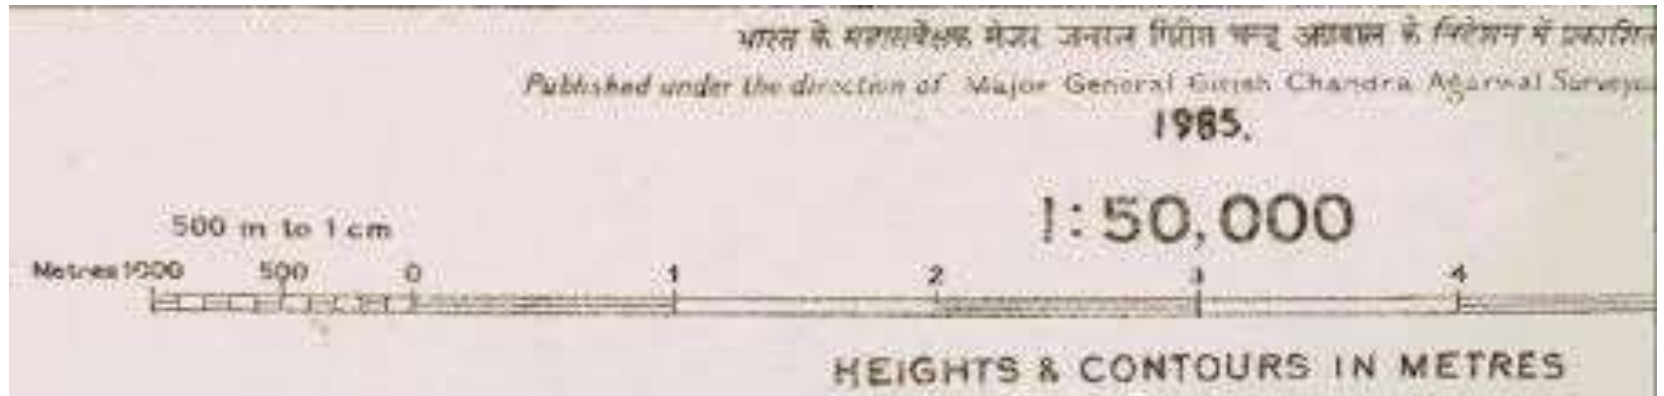 भारत के महासर्वेक्षक मेजर जनरल गिरीश चन्द्र अग्रवाल के निदेशन में
Published under the direction of Major General Girish Chandra Agarwal
1985.
1:50,000
500 m to 1 cm
Metres 1000 500 0 1 2 3 4
HEIGHTS & CONTOURS IN METRES